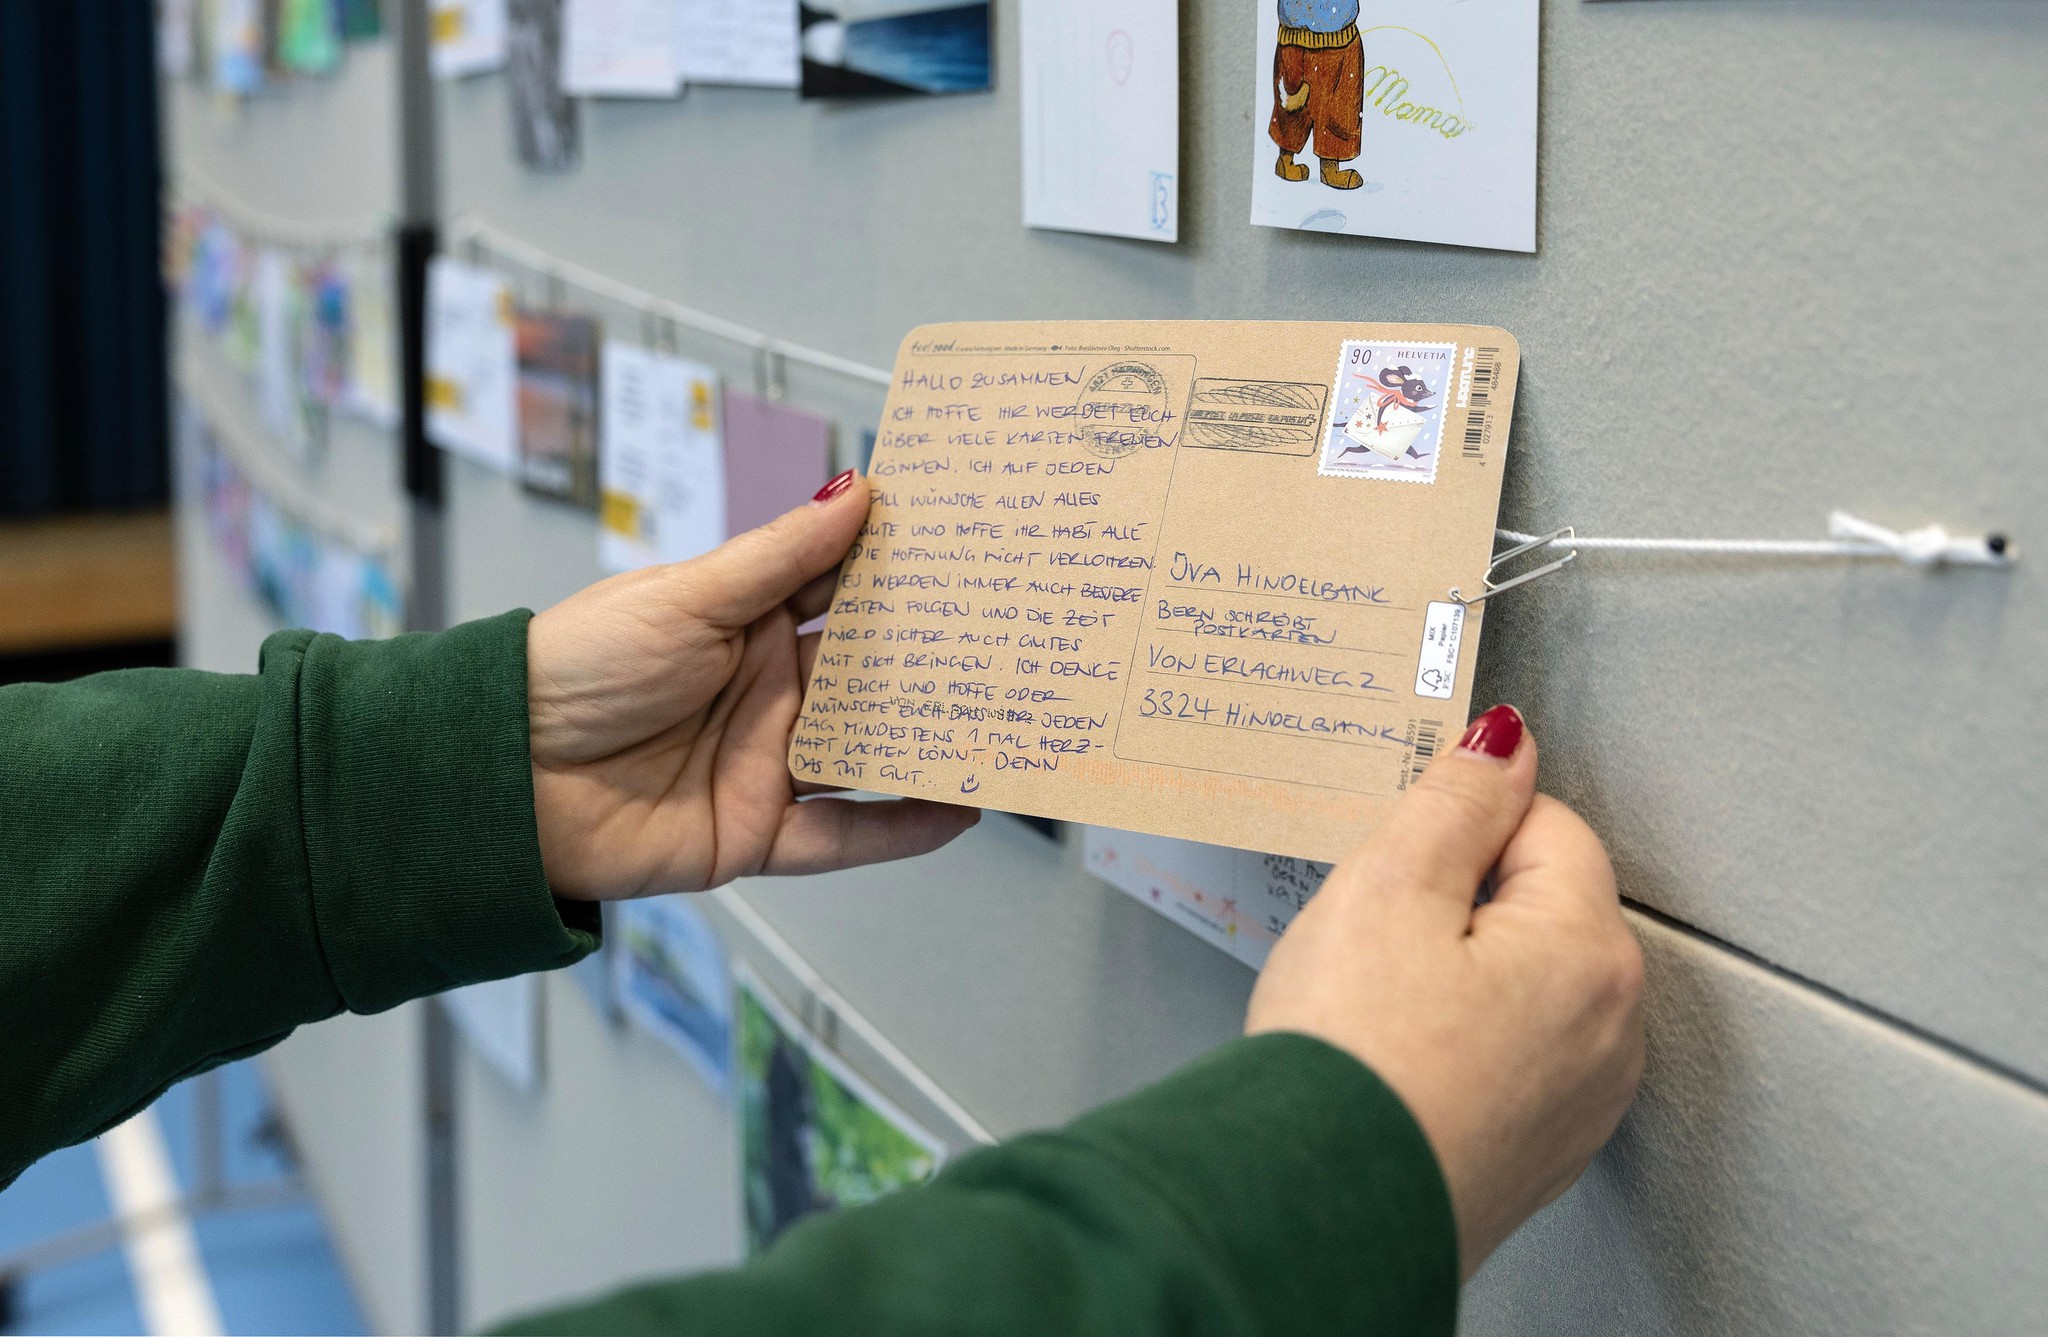 Mama
feel good
Made in Germany · Foto: Breslavtsev Oleg · Shutterstock.com
HALLO ZUSAMMEN
ICH HOFFE IHR WERDET EUCH
ÜBER VIELE KARTEN FREUEN
KÖNNEN. ICH AUF JEDEN
FALL WÜNSCHE ALLEN ALLES
GUTE UND HOFFE IHR HABT ALLE
DIE HOFFNUNG NICHT VERLOHREN.
WERDEN IMMER AUCH BESSERE
ZEITEN FOLGEN UND DIE ZEIT
WIRD SICHER AUCH GUTES
MIT SICH BRINGEN. ICH DENKE
AN EUCH UND HOFFE ODER
WÜNSCHE EUCH DASS IHR JEDEN
TAG MINDESTENS 1 MAL HERZ-
HAFT LACHEN KÖNNT. DENN
DAS TUT GUT..
90 HELVETIA
4 027913 484488
JVA HINDELBANK
BERN SCHREIBT
POSTKARTEN
VON ERLACHWEG 2
3324 HINDELBANK
MIX
Papier
FSC® C107139
FSC
Best.-Nr. 38591